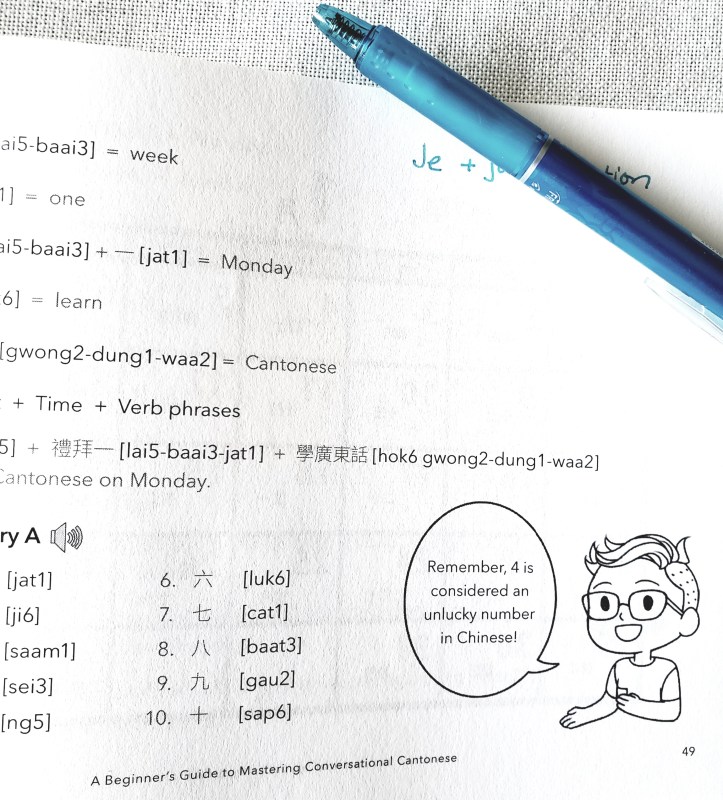 ai5-baai3] = week
Je + j
Lion
1] = one
ai5-baai3] + 一 [jat1] = Monday
6] = learn
[gwong2-dung1-waa2] = Cantonese
+ Time + Verb phrases
5] + 禮拜一 [lai5-baai3-jat1] + 學廣東話 [hok6 gwong2-dung1-waa2]
Cantonese on Monday.
ry A
[jat1]
[ji6]
[saam1]
[sei3]
[ng5]
6. 六 [luk6]
7. 七 [cat1]
8. 八 [baat3]
9. 九 [gau2]
10. 十 [sap6]
Remember, 4 is
considered an
unlucky number
in Chinese!
49
A Beginner's Guide to Mastering Conversational Cantonese